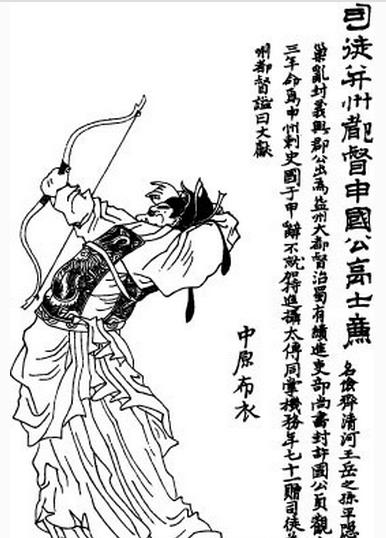 司徒并州都督申國公高士廉 名儉齊清河王岳之孫平隱
巢亂封義興郡公出為益州大都督治蜀有績進吏部尚書封許國公貞觀
三年命為申州刺史國于申辭不就加特進攝太傅同掌機務年七十一贈司徒并
州都督諡曰文獻
中原布衣